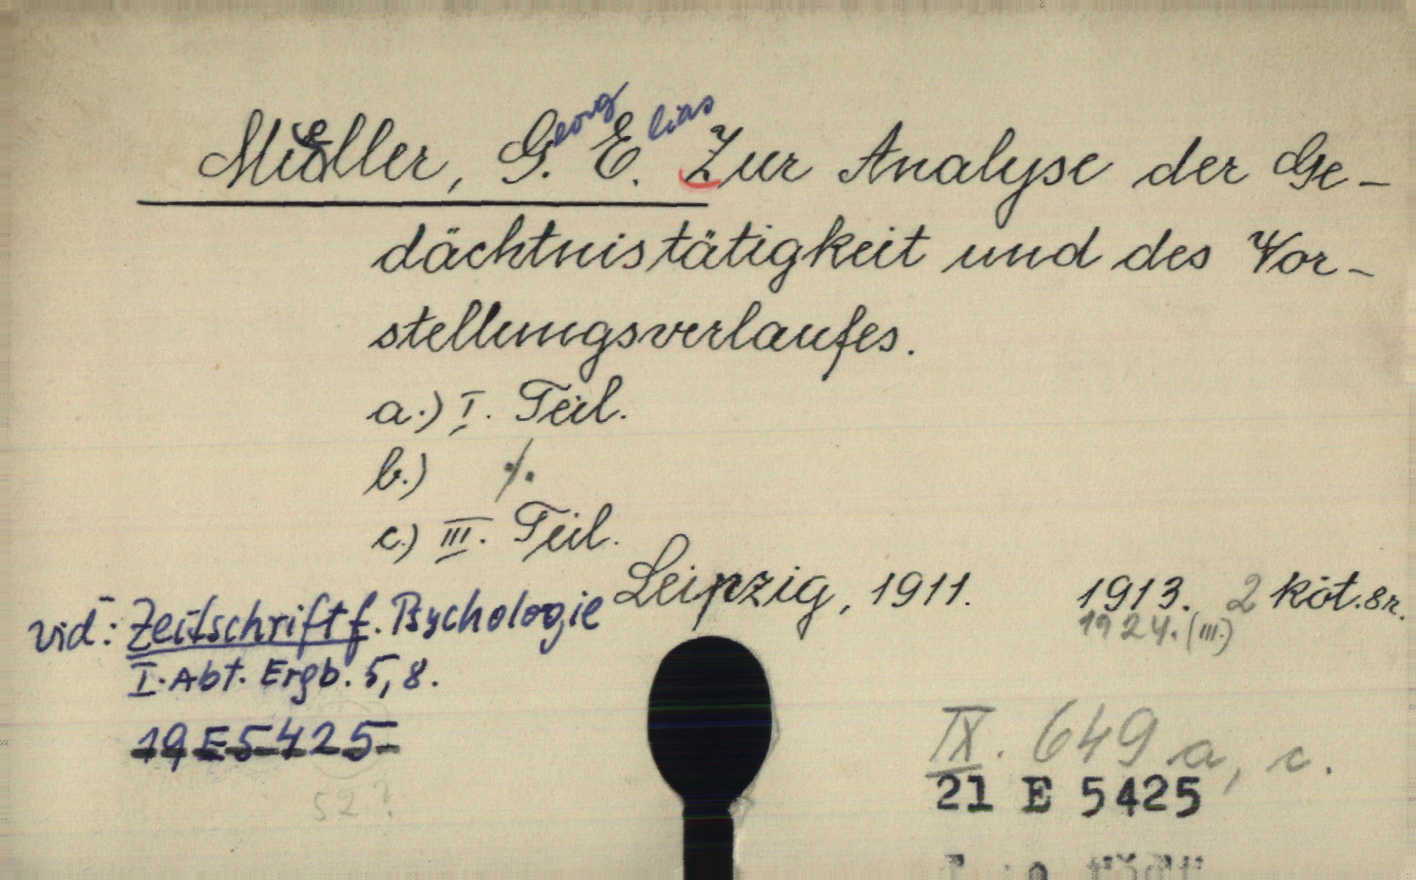 Müller, Georg Elias Zur Analyse der Ge-
dächtnistätigkeit und des Vor-
stellungsverlaufes.
a.) I. Teil.
b.) ·/.
c.) III. Teil.
Leipzig, 1911. 1913. 2 köt. 8r.
1924. (III.)
vid: Zeitschrift f. Psychologie
I. Abt. Ergb. 5, 8.
19 E 5425
IX. 649 a, c.
21 E 5425
52?